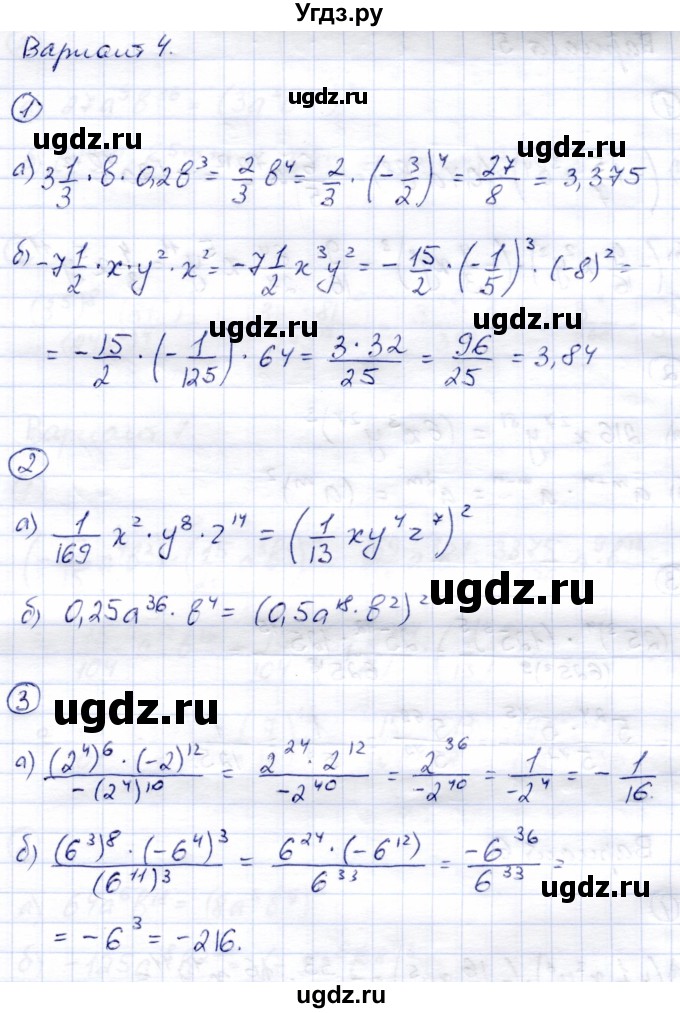 Угдз.ру
Вариант 4.
ugdz.ru
①
ugdz.ru
а) 3 1/3 · в · 0,2в³ = 2/3 в⁴ = 2/3 · (-3/2)⁴ = 27/8 = 3,375
ugdz.ru
б) -7 1/2 · x · y² · x² = -7 1/2 x³y² = -15/2 · (-1/5)³ · (-8)² =
ugdz.ru
ugdz.ru
= -15/2 · (-1/125) · 64 = 3·32/25 = 96/25 = 3,84
②
а) 1/169 x² · y⁸ · z¹⁴ = (1/13 xy⁴z⁷)²
ugdz.ru
б) 0,25a³⁶ · в⁴ = (0,5a¹⁸ · в²)²
③
ugdz.ru
а) (2⁴)⁶ · (-2)¹² / -(2⁴)¹⁰ = 2²⁴ · 2¹² / -2⁴⁰ = 2³⁶ / -2⁴⁰ = 1 / -2⁴ = -1/16.
б) (6³)⁸ · (-6⁴)³ / (6¹¹)³ = 6²⁴ · (-6¹²) / 6³³ = -6³⁶ / 6³³ =
ugdz.ru
= -6³ = -216.
ugdz.ru
ugdz.ru